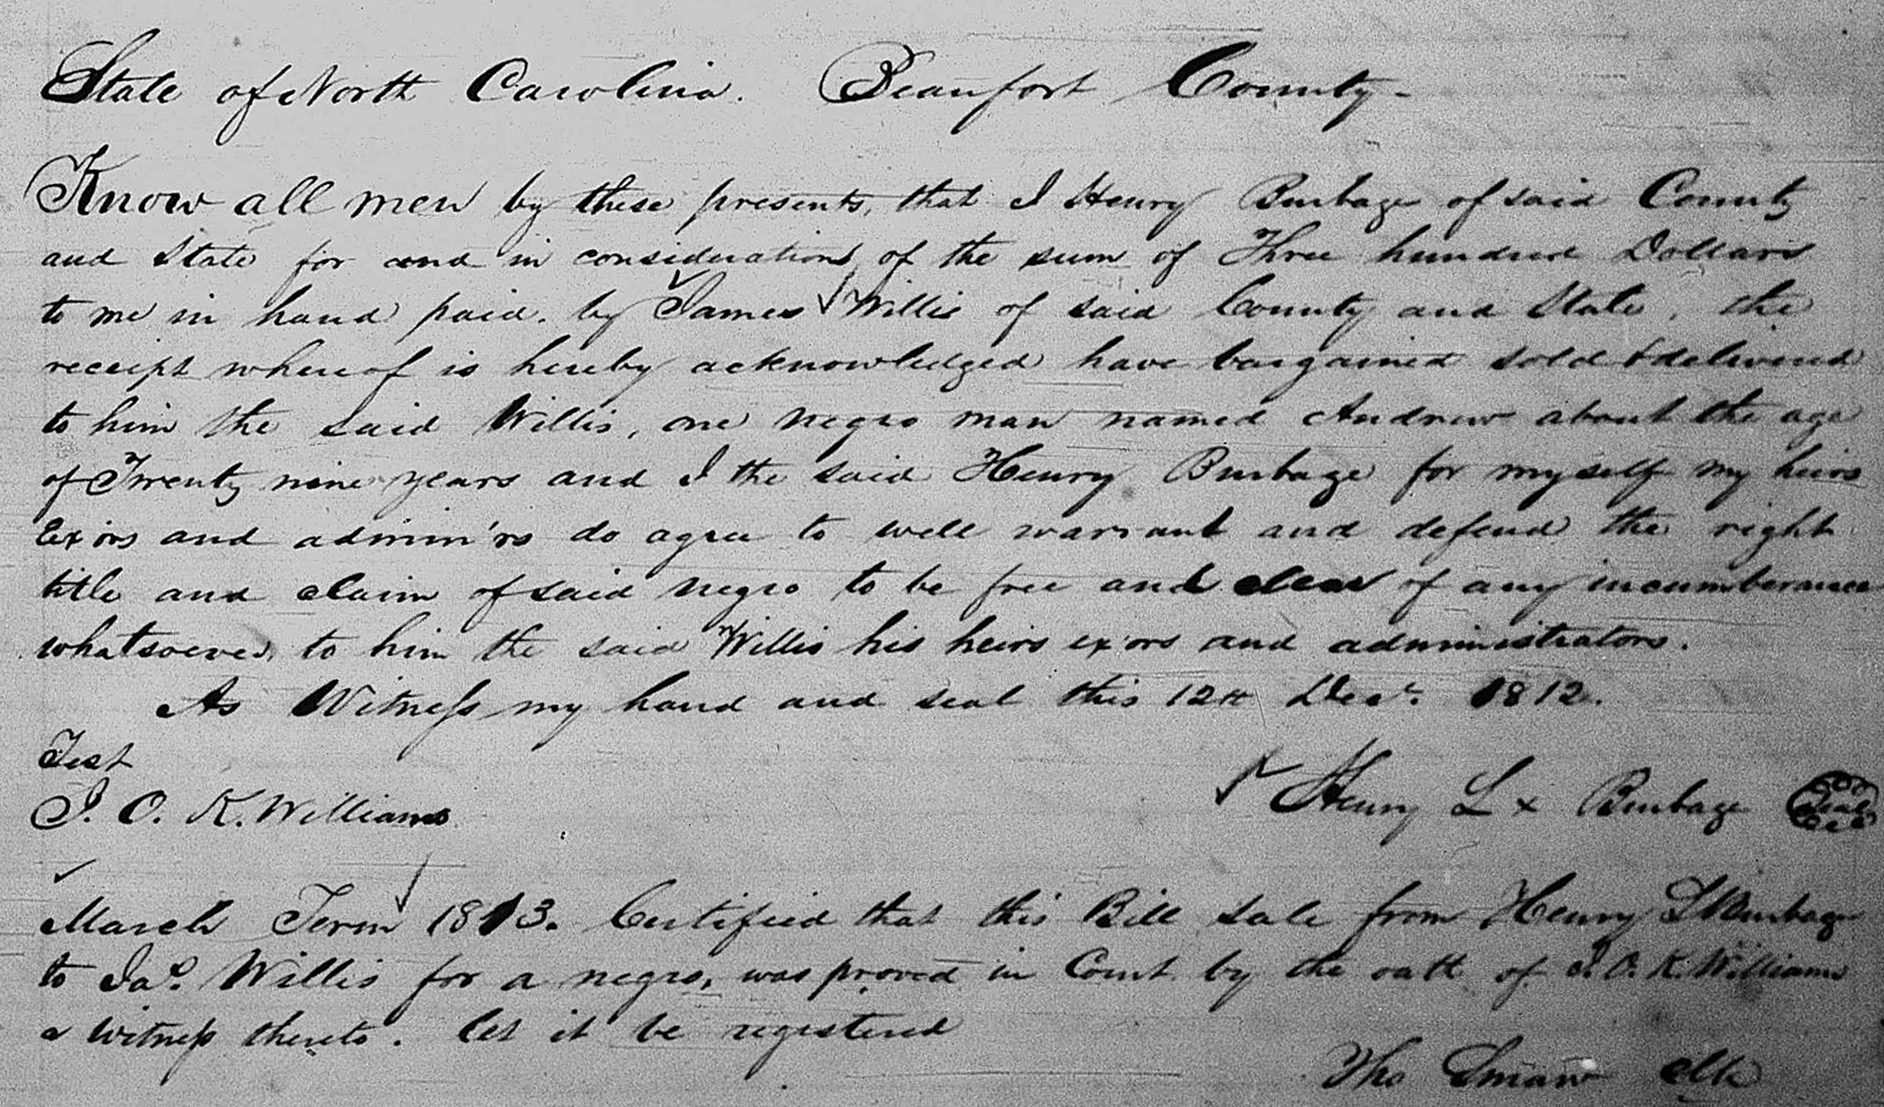 State of North Carolina. Beaufort County-
Know all men by these presents, that I Henry Burbage of said County
and State for and in consideration of the sum of Three hundred Dollars
to me in hand paid. by James Willis of said County and State, the
receipt whereof is hereby acknowledged have bargained sold & delivered
to him the said Willis, one negro man named Andrew about the age
of Twenty nine years and I the said Henry Burbage for myself my heirs
Ex'ors and admin'rs do agree to well warrant and defend the right
title and claim of said negro to be free and clear of any incumberance
whatsoever, to him the said Willis his heirs ex'ors and administrators.
As Witness my hand and seal this 12th Decr. 1812.
Test
J. O. K. Williams
Henry L x Burbage Seal
March Term 1813. Certified that this Bill Sale from Henry L Burbage
to Jas. Willis for a negro, was proved in Court by the oath of J. O. K. Williams
a Witness thereto. Let it be registered
Tho Smaw Clk